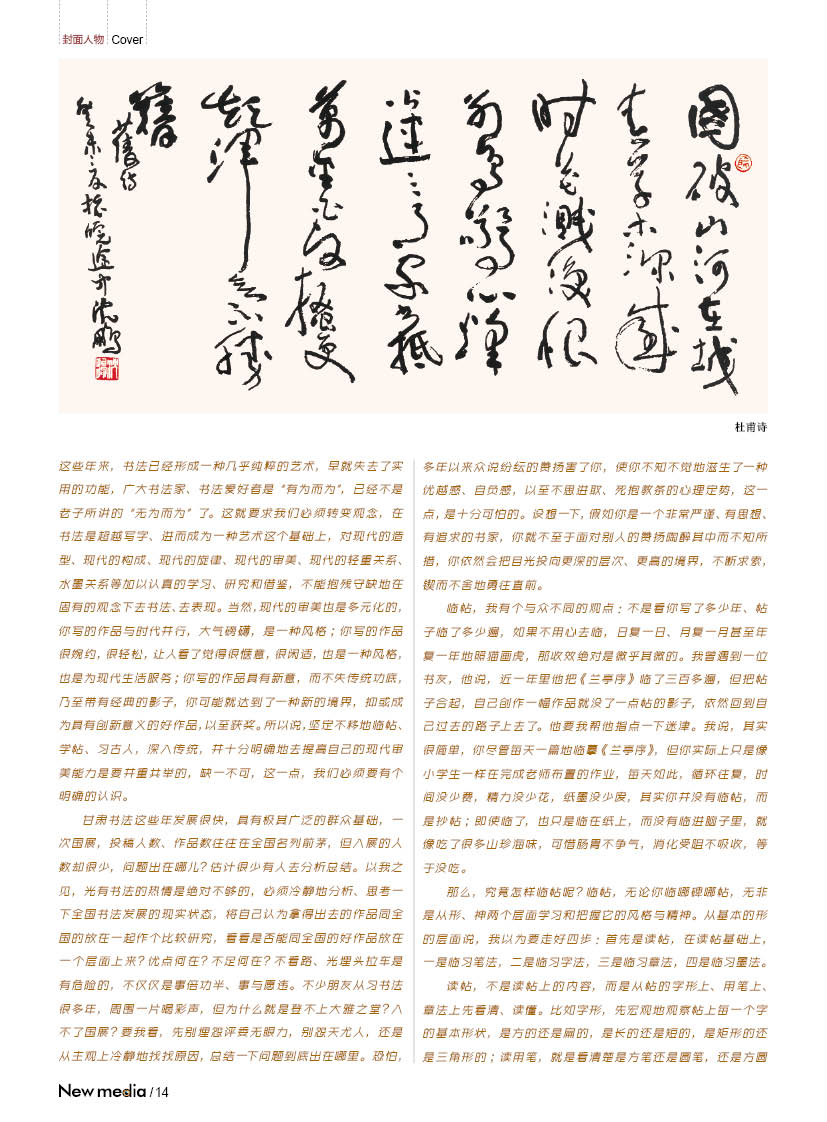 封面人物 Cover
國破山河在城
春草木深感
时花溅泪恨
别鸟惊心烽
火连三月家书抵
萬金白头搔更
短渾欲不勝
簪
沈鹏
杜甫诗
这些年来，书法已经形成一种几乎纯粹的艺术，早就失去了实
用的功能，广大书法家、书法爱好者是“有为而为”，已经不是
老子所讲的“无为而为”了。这就要求我们必须转变观念，在
书法是超越写字、进而成为一种艺术这个基础上，对现代的造
型、现代的构成、现代的旋律、现代的审美、现代的轻重关系、
水墨关系等加以认真的学习、研究和借鉴，不能抱残守缺地在
固有的观念下去书法、去表现。当然，现代的审美也是多元化的，
你写的作品与时代并行，大气磅礴，是一种风格；你写的作品
很婉约，很轻松，让人看了觉得很惬意，很闲适，也是一种风格，
也是为现代生活服务；你写的作品具有新意，而不失传统功底，
乃至带有经典的影子，你可能就达到了一种新的境界，抑或成
为具有创新意义的好作品，以至获奖。所以说，坚定不移地临帖、
学帖、习古人，深入传统，并十分明确地去提高自己的现代审
美能力是要并重共举的，缺一不可，这一点，我们必须要有个
明确的认识。
甘肃书法这些年发展很快，具有极其广泛的群众基础，一
次国展，投稿人数、作品数往往在全国名列前茅，但入展的人
数却很少，问题出在哪儿？估计很少有人去分析总结。以我之
见，光有书法的热情是绝对不够的，必须冷静地分析、思考一
下全国书法发展的现实状态，将自己认为拿得出去的作品同全
国的放在一起作个比较研究，看看是否能同全国的好作品放在
一个层面上来？优点何在？不足何在？不看路、光埋头拉车是
有危险的，不仅仅是事倍功半、事与愿违。不少朋友从习书法
很多年，周围一片喝彩声，但为什么就是登不上大雅之堂？入
不了国展？要我看，先别埋怨评委无眼力，别怨天尤人，还是
从主观上冷静地找找原因，总结一下问题到底出在哪里。恐怕，
多年以来众说纷纭的赞扬害了你，使你不知不觉地滋生了一种
优越感、自负感，以至不思进取、死抱教条的心理定势，这一
点，是十分可怕的。设想一下，假如你是一个非常严谨、有思想、
有追求的书家，你就不至于面对别人的赞扬陶醉其中而不知所
措，你依然会把目光投向更深的层次、更高的境界，不断求索，
锲而不舍地勇往直前。
临帖，我有个与众不同的观点：不是看你写了多少年、帖
子临了多少遍，如果不用心去临，日复一日、月复一月甚至年
复一年地照猫画虎，那收效绝对是微乎其微的。我曾遇到一位
书友，他说，近一年里他把《兰亭序》临了三百多遍，但把帖
子合起，自己创作一幅作品就没了一点帖的影子，依然回到自
己过去的路子上去了。他要我帮他指点一下迷津。我说，其实
很简单，你尽管每天一篇地临摹《兰亭序》，但你实际上只是像
小学生一样在完成老师布置的作业，每天如此，循环往复，时
间没少费，精力没少花，纸墨没少废，其实你并没有临帖，而
是抄帖；即使临了，也只是临在纸上，而没有临进脑子里，就
像吃了很多山珍海味，可惜肠胃不争气，消化受阻不吸收，等
于没吃。
那么，究竟怎样临帖呢？临帖，无论你临哪碑哪帖，无非
是从形、神两个层面学习和把握它的风格与精神。从基本的形
的层面说，我以为要走好四步：首先是读帖，在读帖基础上，
一是临习笔法，二是临习字法，三是临习章法，四是临习墨法。
读帖，不是读帖上的内容，而是从帖的字形上、用笔上、
章法上先看清、读懂。比如字形，先宏观地观察帖上每一个字
的基本形状，是方的还是扁的，是长的还是短的，是矩形的还
是三角形的；读用笔，就是看清楚是方笔还是圆笔，还是方圆
New media / 14